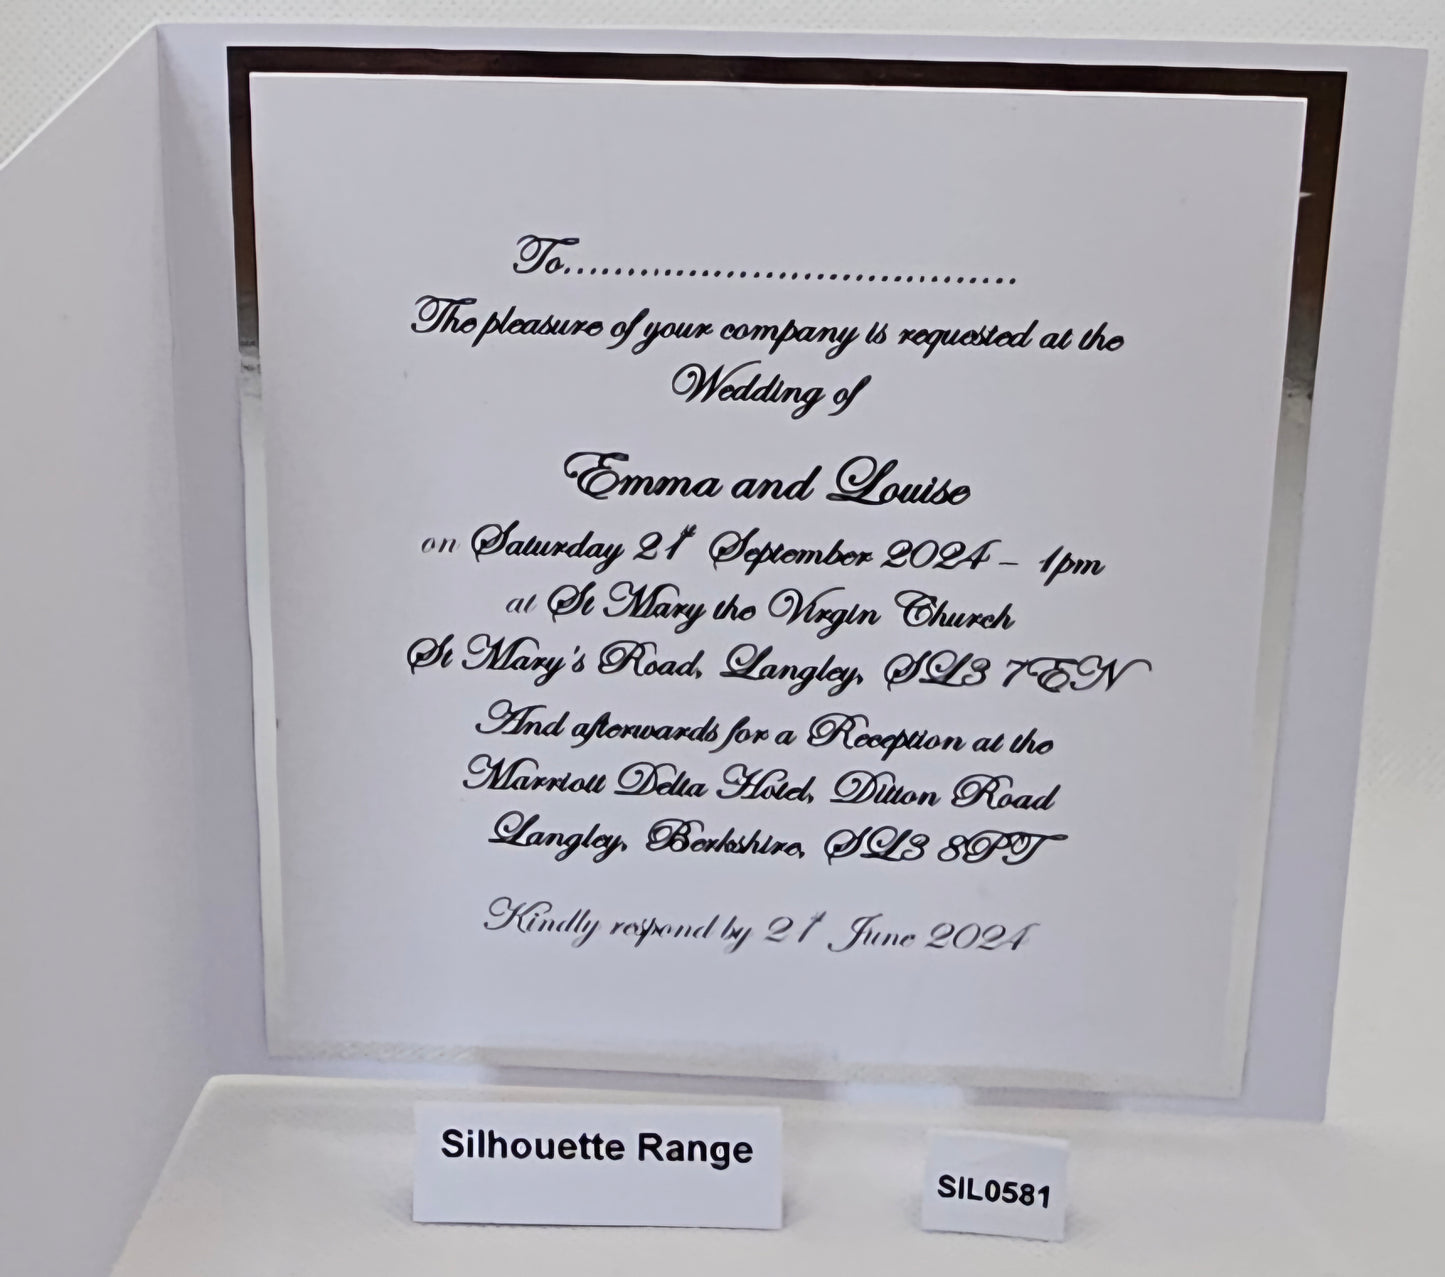 To....................................
The pleasure of your company is requested at the
Wedding of
Emma and Louise
on Saturday 21st September 2024 – 1pm
at St Mary the Virgin Church
St Mary's Road, Langley, SL3 7EN
And afterwards for a Reception at the
Marriott Delta Hotel, Ditton Road
Langley, Berkshire, SL3 8PT
Kindly respond by 21st June 2024
Silhouette Range
SIL0581